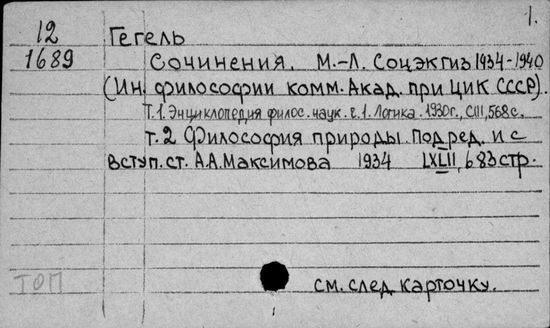 1.
12 Гегель
1689 Сочинения. М.-Л. Соцэкгиз 1934-1940
(Ин. философии комм. Акад. при ЦИК СССР).
Т.1. Энциклопедия филос. наук. ч.1. Логика. 1930г., CIII, 568с.
т.2 Философия природы. Под ред. и с
вступ. ст. А.А. Максимова 1934 LXLII, 683 стр.
ТОП
см. след карточку.